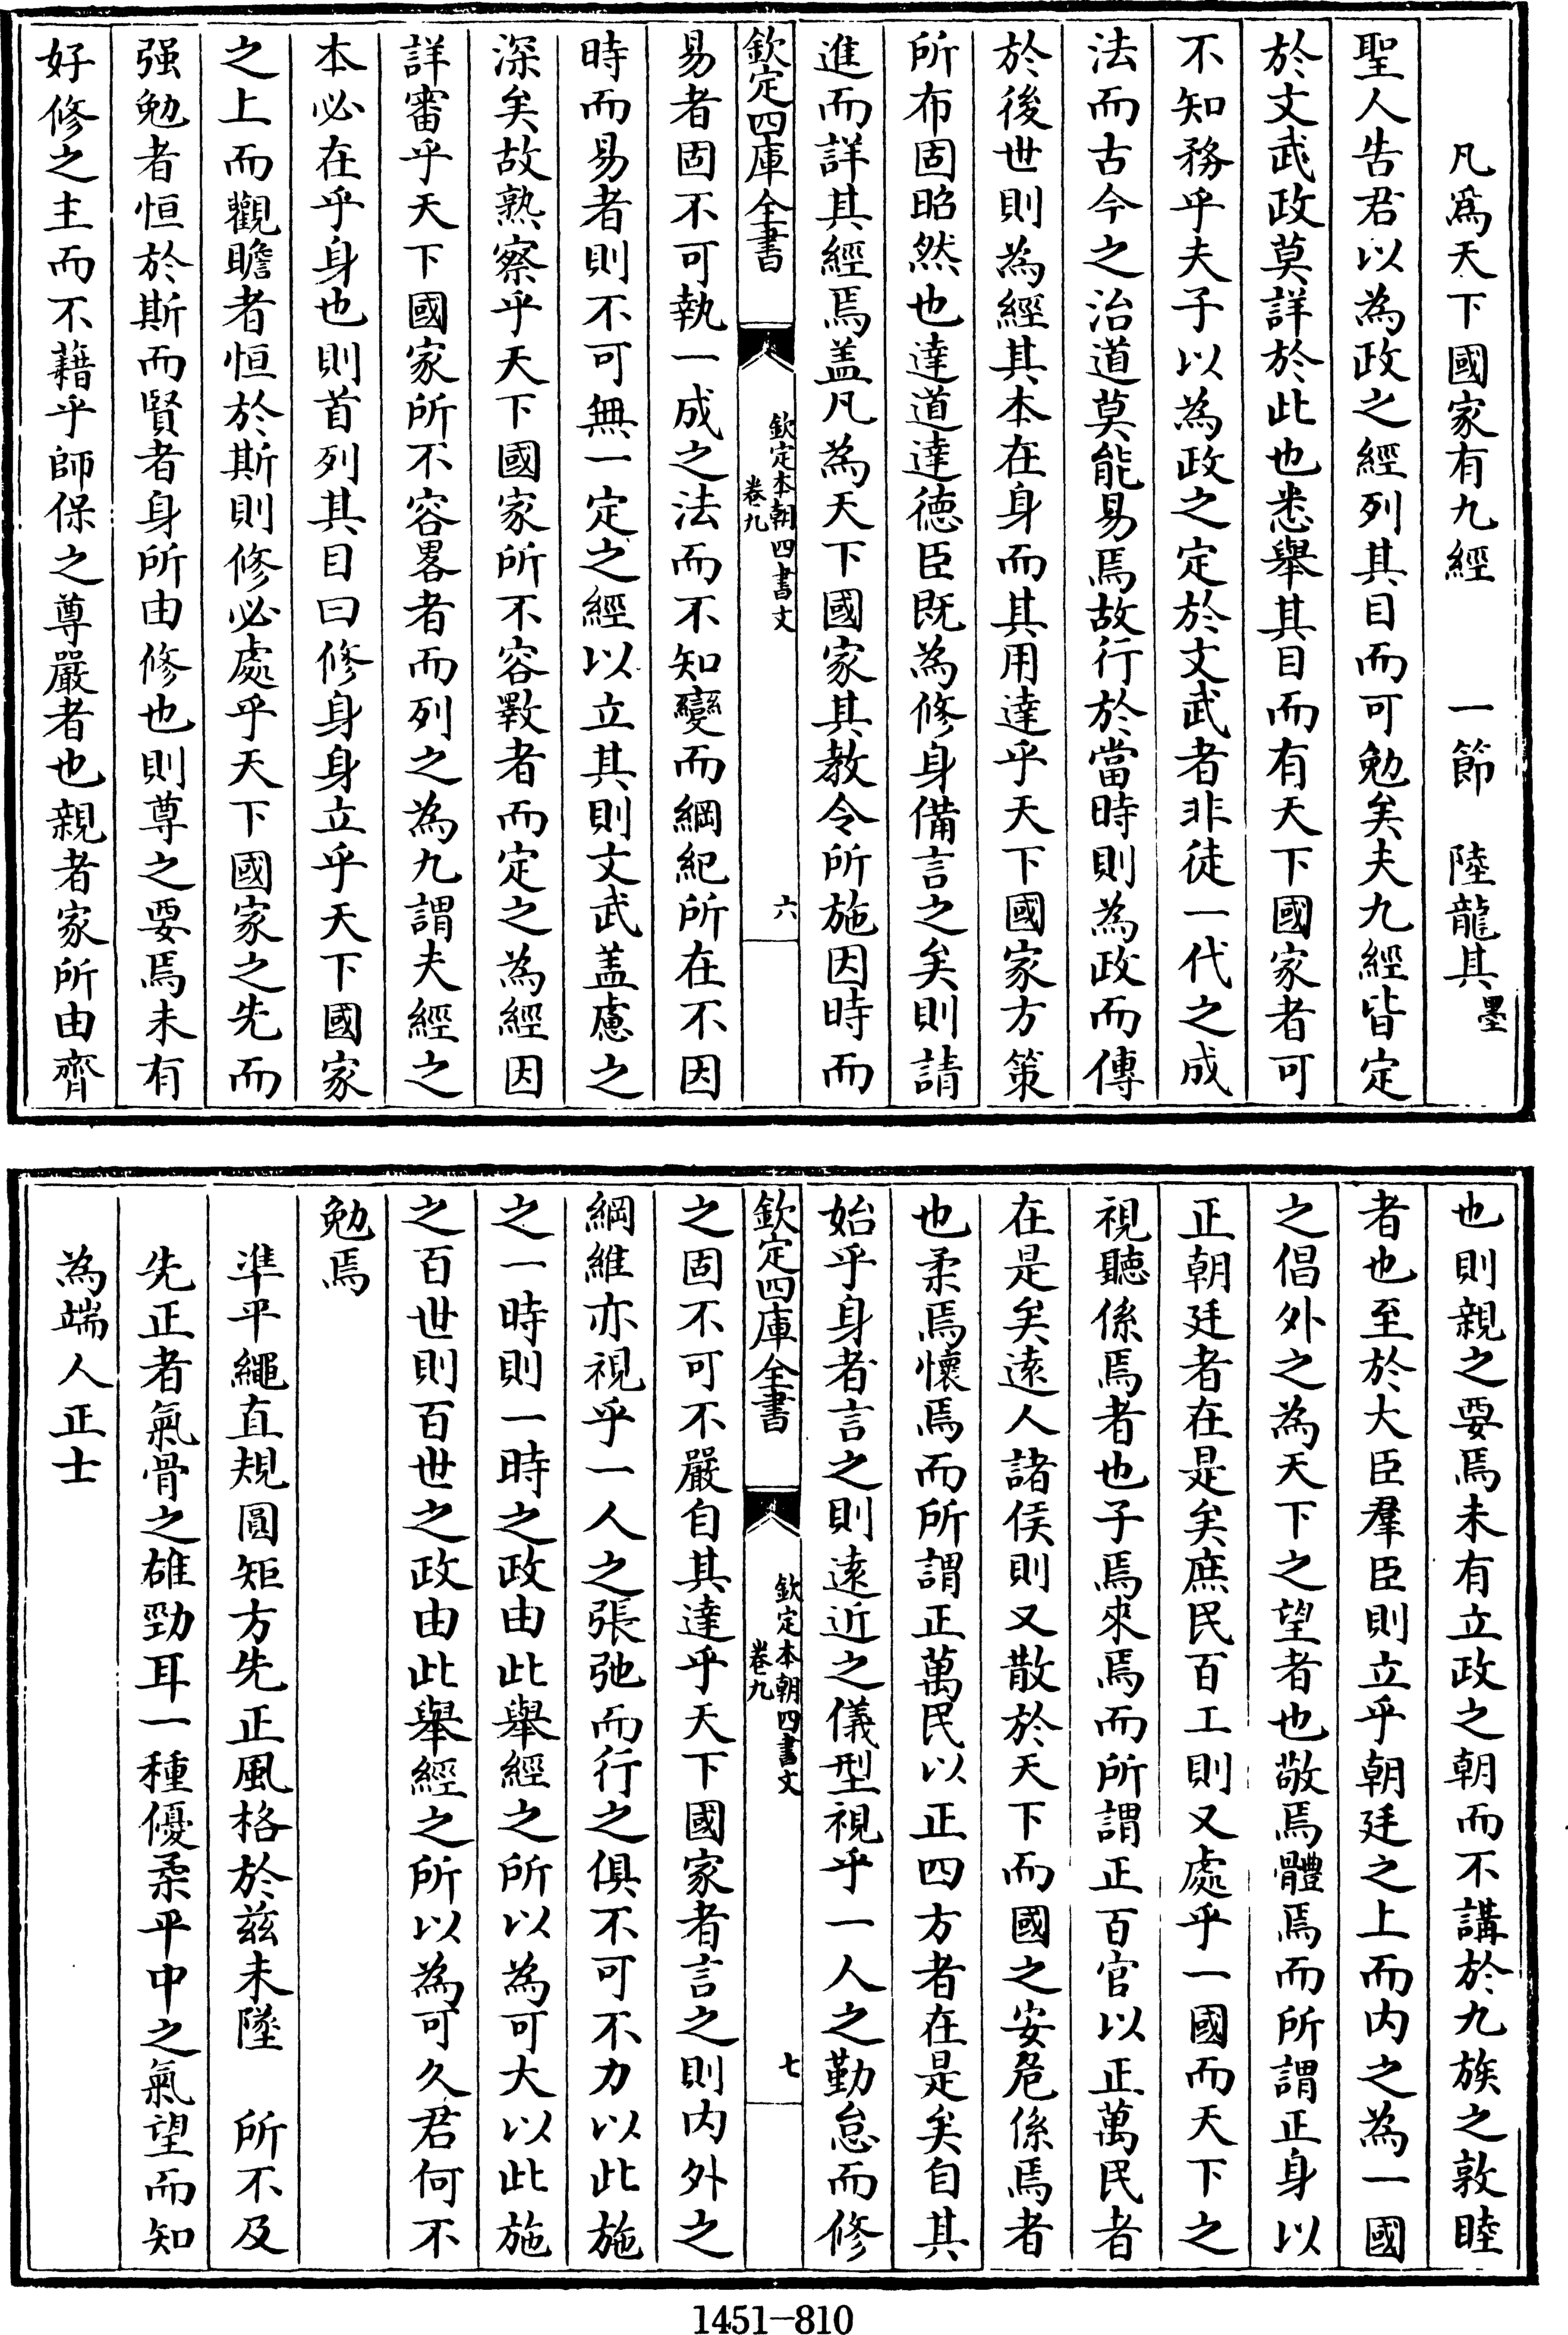 凡爲天下國家有九經　一節　陸龍其墨
聖人告君以為政之經列其目而可勉矣夫九經皆定
於文武政莫詳於此也悉舉其目而有天下國家者可
不知務乎夫子以為政之定於文武者非徒一代之成
法而古今之治道莫能易焉故行於當時則為政而傳
於後世則為經其本在身而其用達乎天下國家方策
所布固昭然也達道達德臣既為修身備言之矣則請
進而詳其經焉盖凡為天下國家其教令所施因時而
欽定四庫全書
欽定本朝四書文
卷九
六
易者固不可執一成之法而不知變而綱紀所在不因
時而易者則不可無一定之經以立其則文武盖慮之
深矣故熟察乎天下國家所不容斁者而定之為經因
詳審乎天下國家所不容畧者而列之為九謂夫經之
本必在乎身也則首列其目曰修身身立乎天下國家
之上而觀瞻者恒於斯則修必處乎天下國家之先而
强勉者恒於斯而賢者身所由修也則尊之要焉未有
好修之主而不藉乎師保之尊嚴者也親者家所由齊
也則親之要焉未有立政之朝而不講於九族之敦睦
者也至於大臣羣臣則立乎朝廷之上而内之為一國
之倡外之為天下之望者也敬焉體焉而所謂正身以
正朝廷者在是矣庶民百工則又處乎一國而天下之
視聽係焉者也子焉來焉而所謂正百官以正萬民者
在是矣逺人諸侯則又散於天下而國之安危係焉者
也柔焉懷焉而所謂正萬民以正四方者在是矣自其
始乎身者言之則逺近之儀型視乎一人之勤怠而修
欽定四庫全書
欽定本朝四書文
卷九
七
之固不可不嚴自其達乎天下國家者言之則内外之
綱維亦視乎一人之張弛而行之俱不可不力以此施
之一時則一時之政由此舉經之所以為可大以此施
之百世則百世之政由此舉經之所以為可久君何不
勉焉
凖平繩直規圓矩方先正風格於兹未墜　所不及
先正者氣骨之雄勁耳一種優柔平中之氣望而知
為端人正士
1451-810